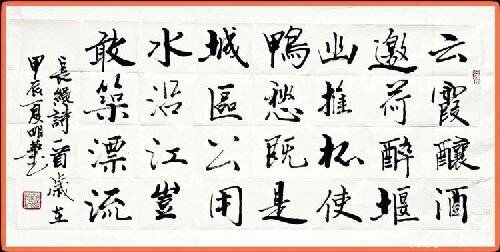 云霞釀酒
邀荷醉堰
幽推杯使
鴨愁既是
城區公用
水沿江豈
敢築漂流
詩一首歲在
甲辰夏明